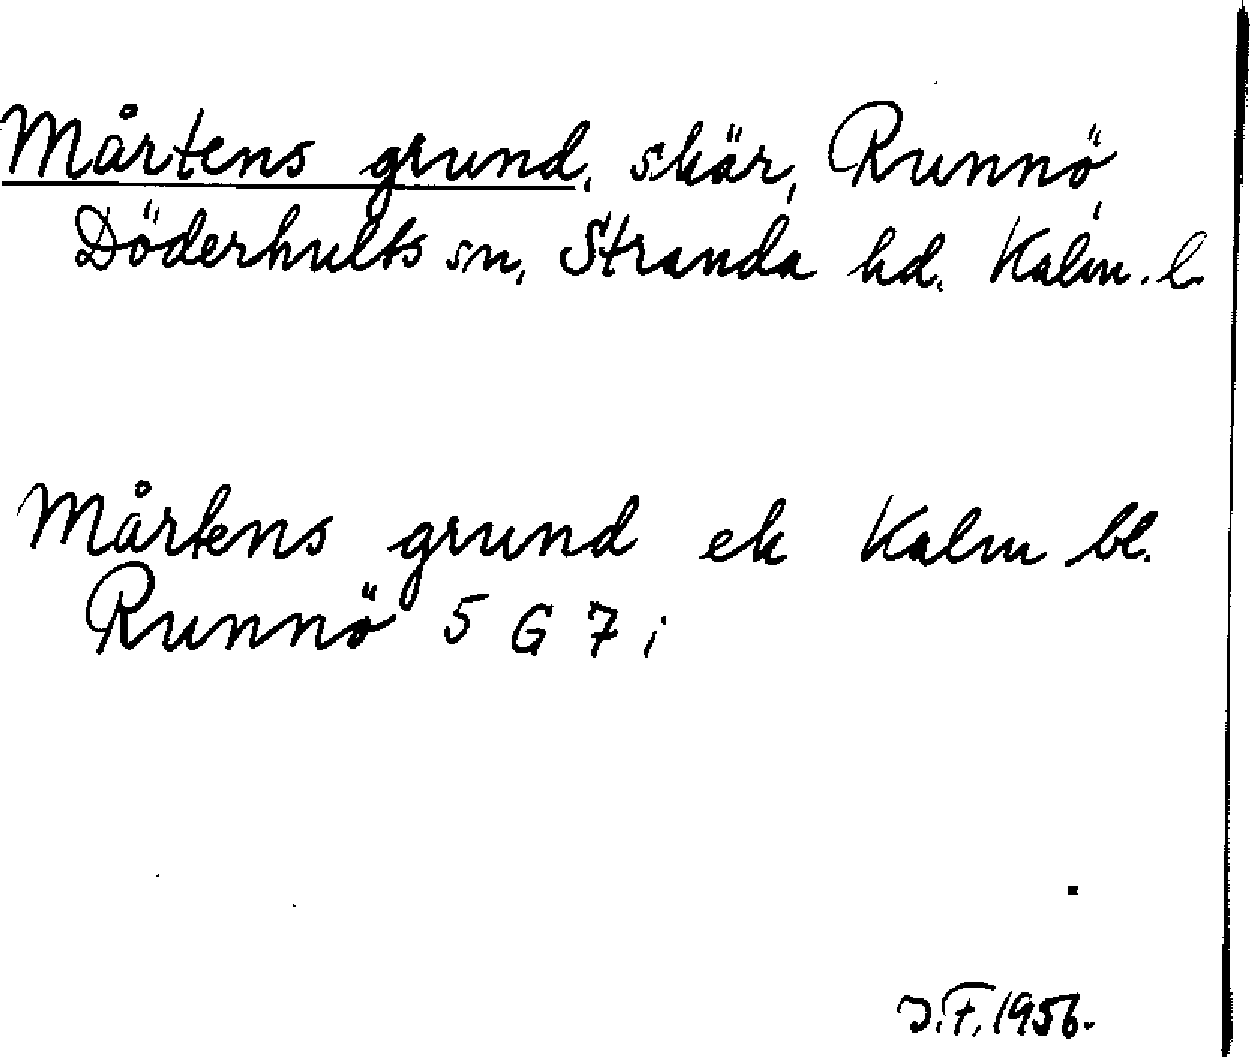 Mårtens grund, skär, Runnö,
Döderhults sn, Stranda hd. Kalm. l.
Mårtens grund ek Kalm bl.
Runnö 5 G 7 i
J.F. 1956.